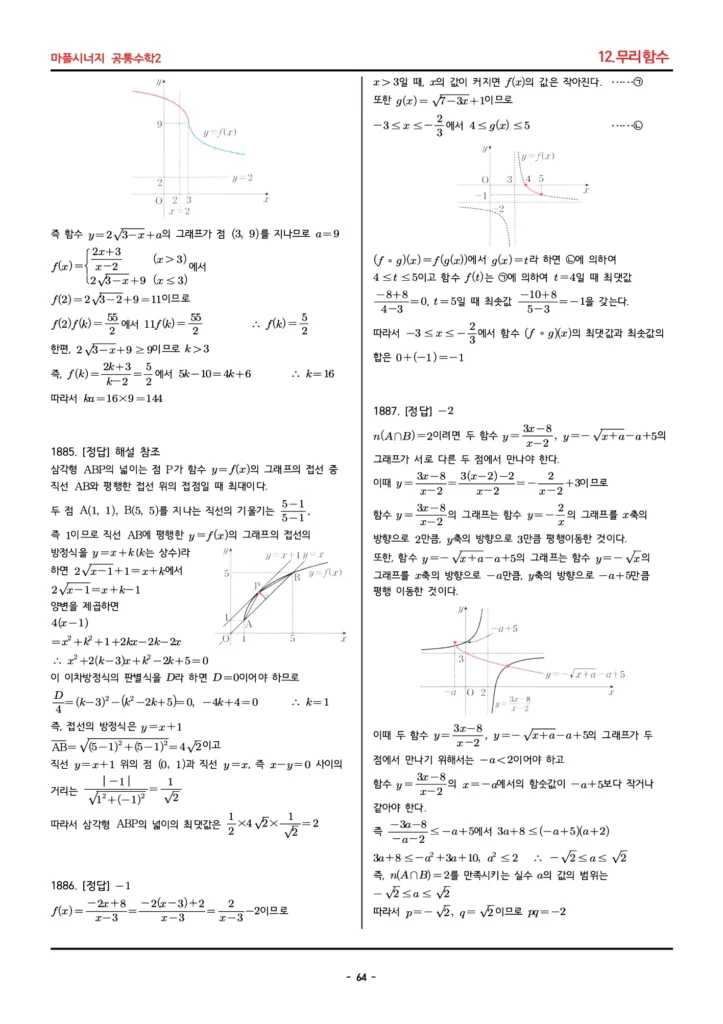 마플시너지 공통수학2
12.무리함수
y
9
y=f(x)
2
y=2
O 2 3 x
x=2
즉 함수 y=2√(3-x)+a의 그래프가 점 (3, 9)를 지나므로 a=9
f(x)={ (2x+3)/(x-2) (x>3)
2√(3-x)+9 (x≤3) 에서
f(2)=2√(3-2)+9=11이므로
f(2)f(k)=55/2에서 11f(k)=55/2 ∴ f(k)=5/2
한편, 2√(3-x)+9≥9이므로 k>3
즉, f(k)=(2k+3)/(k-2)=5/2에서 5k-10=4k+6 ∴ k=16
따라서 ka=16×9=144
1885. [정답] 해설 참조
삼각형 ABP의 넓이는 점 P가 함수 y=f(x)의 그래프의 접선 중
직선 AB와 평행한 접선 위의 접점일 때 최대이다.
두 점 A(1, 1), B(5, 5)를 지나는 직선의 기울기는 (5-1)/(5-1),
즉 1이므로 직선 AB에 평행한 y=f(x)의 그래프의 접선의
방정식을 y=x+k(k는 상수)라
하면 2√(x-1)+1=x+k에서
2√(x-1)=x+k-1
양변을 제곱하면
4(x-1)
=x²+k²+1+2kx-2k-2x
∴ x²+2(k-3)x+k²-2k+5=0
y
y=x+1 y=x
5
y=f(x)
B
P
1
A
O 1 5 x
이 이차방정식의 판별식을 D라 하면 D=0이어야 하므로
D/4=(k-3)²-(k²-2k+5)=0, -4k+4=0 ∴ k=1
즉, 접선의 방정식은 y=x+1
AB=√((5-1)²+(5-1)²)=4√2이고
직선 y=x+1 위의 점 (0, 1)과 직선 y=x, 즉 x-y=0 사이의
거리는 |-1|/√(1²+(-1)²)=1/√2
따라서 삼각형 ABP의 넓이의 최댓값은 1/2×4√2×1/√2=2
1886. [정답] -1
f(x)=(-2x+8)/(x-3)=(-2(x-3)+2)/(x-3)=2/(x-3)-2이므로
x>3일 때, x의 값이 커지면 f(x)의 값은 작아진다. ……㉠
또한 g(x)=√(7-3x)+1이므로
-3≤x≤-2/3에서 4≤g(x)≤5 ……㉡
y
y=f(x)
O 3 4 5 x
-1
-2
(f∘g)(x)=f(g(x))에서 g(x)=t라 하면 ㉡에 의하여
4≤t≤5이고 함수 f(t)는 ㉠에 의하여 t=4일 때 최댓값
(-8+8)/(4-3)=0, t=5일 때 최솟값 (-10+8)/(5-3)=-1을 갖는다.
따라서 -3≤x≤-2/3에서 함수 (f∘g)(x)의 최댓값과 최솟값의
합은 0+(-1)=-1
1887. [정답] -2
n(A∩B)=2이려면 두 함수 y=(3x-8)/(x-2), y=-√(x+a)-a+5의
그래프가 서로 다른 두 점에서 만나야 한다.
이때 y=(3x-8)/(x-2)=(3(x-2)-2)/(x-2)=-2/(x-2)+3이므로
함수 y=(3x-8)/(x-2)의 그래프는 함수 y=-2/x의 그래프를 x축의
방향으로 2만큼, y축의 방향으로 3만큼 평행이동한 것이다.
또한, 함수 y=-√(x+a)-a+5의 그래프는 함수 y=-√x의
그래프를 x축의 방향으로 -a만큼, y축의 방향으로 -a+5만큼
평행 이동한 것이다.
y
-a+5
3
y=-√(x+a)-a+5
-a O 2 x
y=(3x-8)/(x-2)
이때 두 함수 y=(3x-8)/(x-2), y=-√(x+a)-a+5의 그래프가 두
점에서 만나기 위해서는 -a<2이어야 하고
함수 y=(3x-8)/(x-2)의 x=-a에서의 함숫값이 -a+5보다 작거나
같아야 한다.
즉 (-3a-8)/(-a-2)≤-a+5에서 3a+8≤(-a+5)(a+2)
3a+8≤-a²+3a+10, a²≤2 ∴ -√2≤a≤√2
즉, n(A∩B)=2를 만족시키는 실수 a의 값의 범위는
-√2≤a≤√2
따라서 p=-√2, q=√2이므로 pq=-2
- 64 -